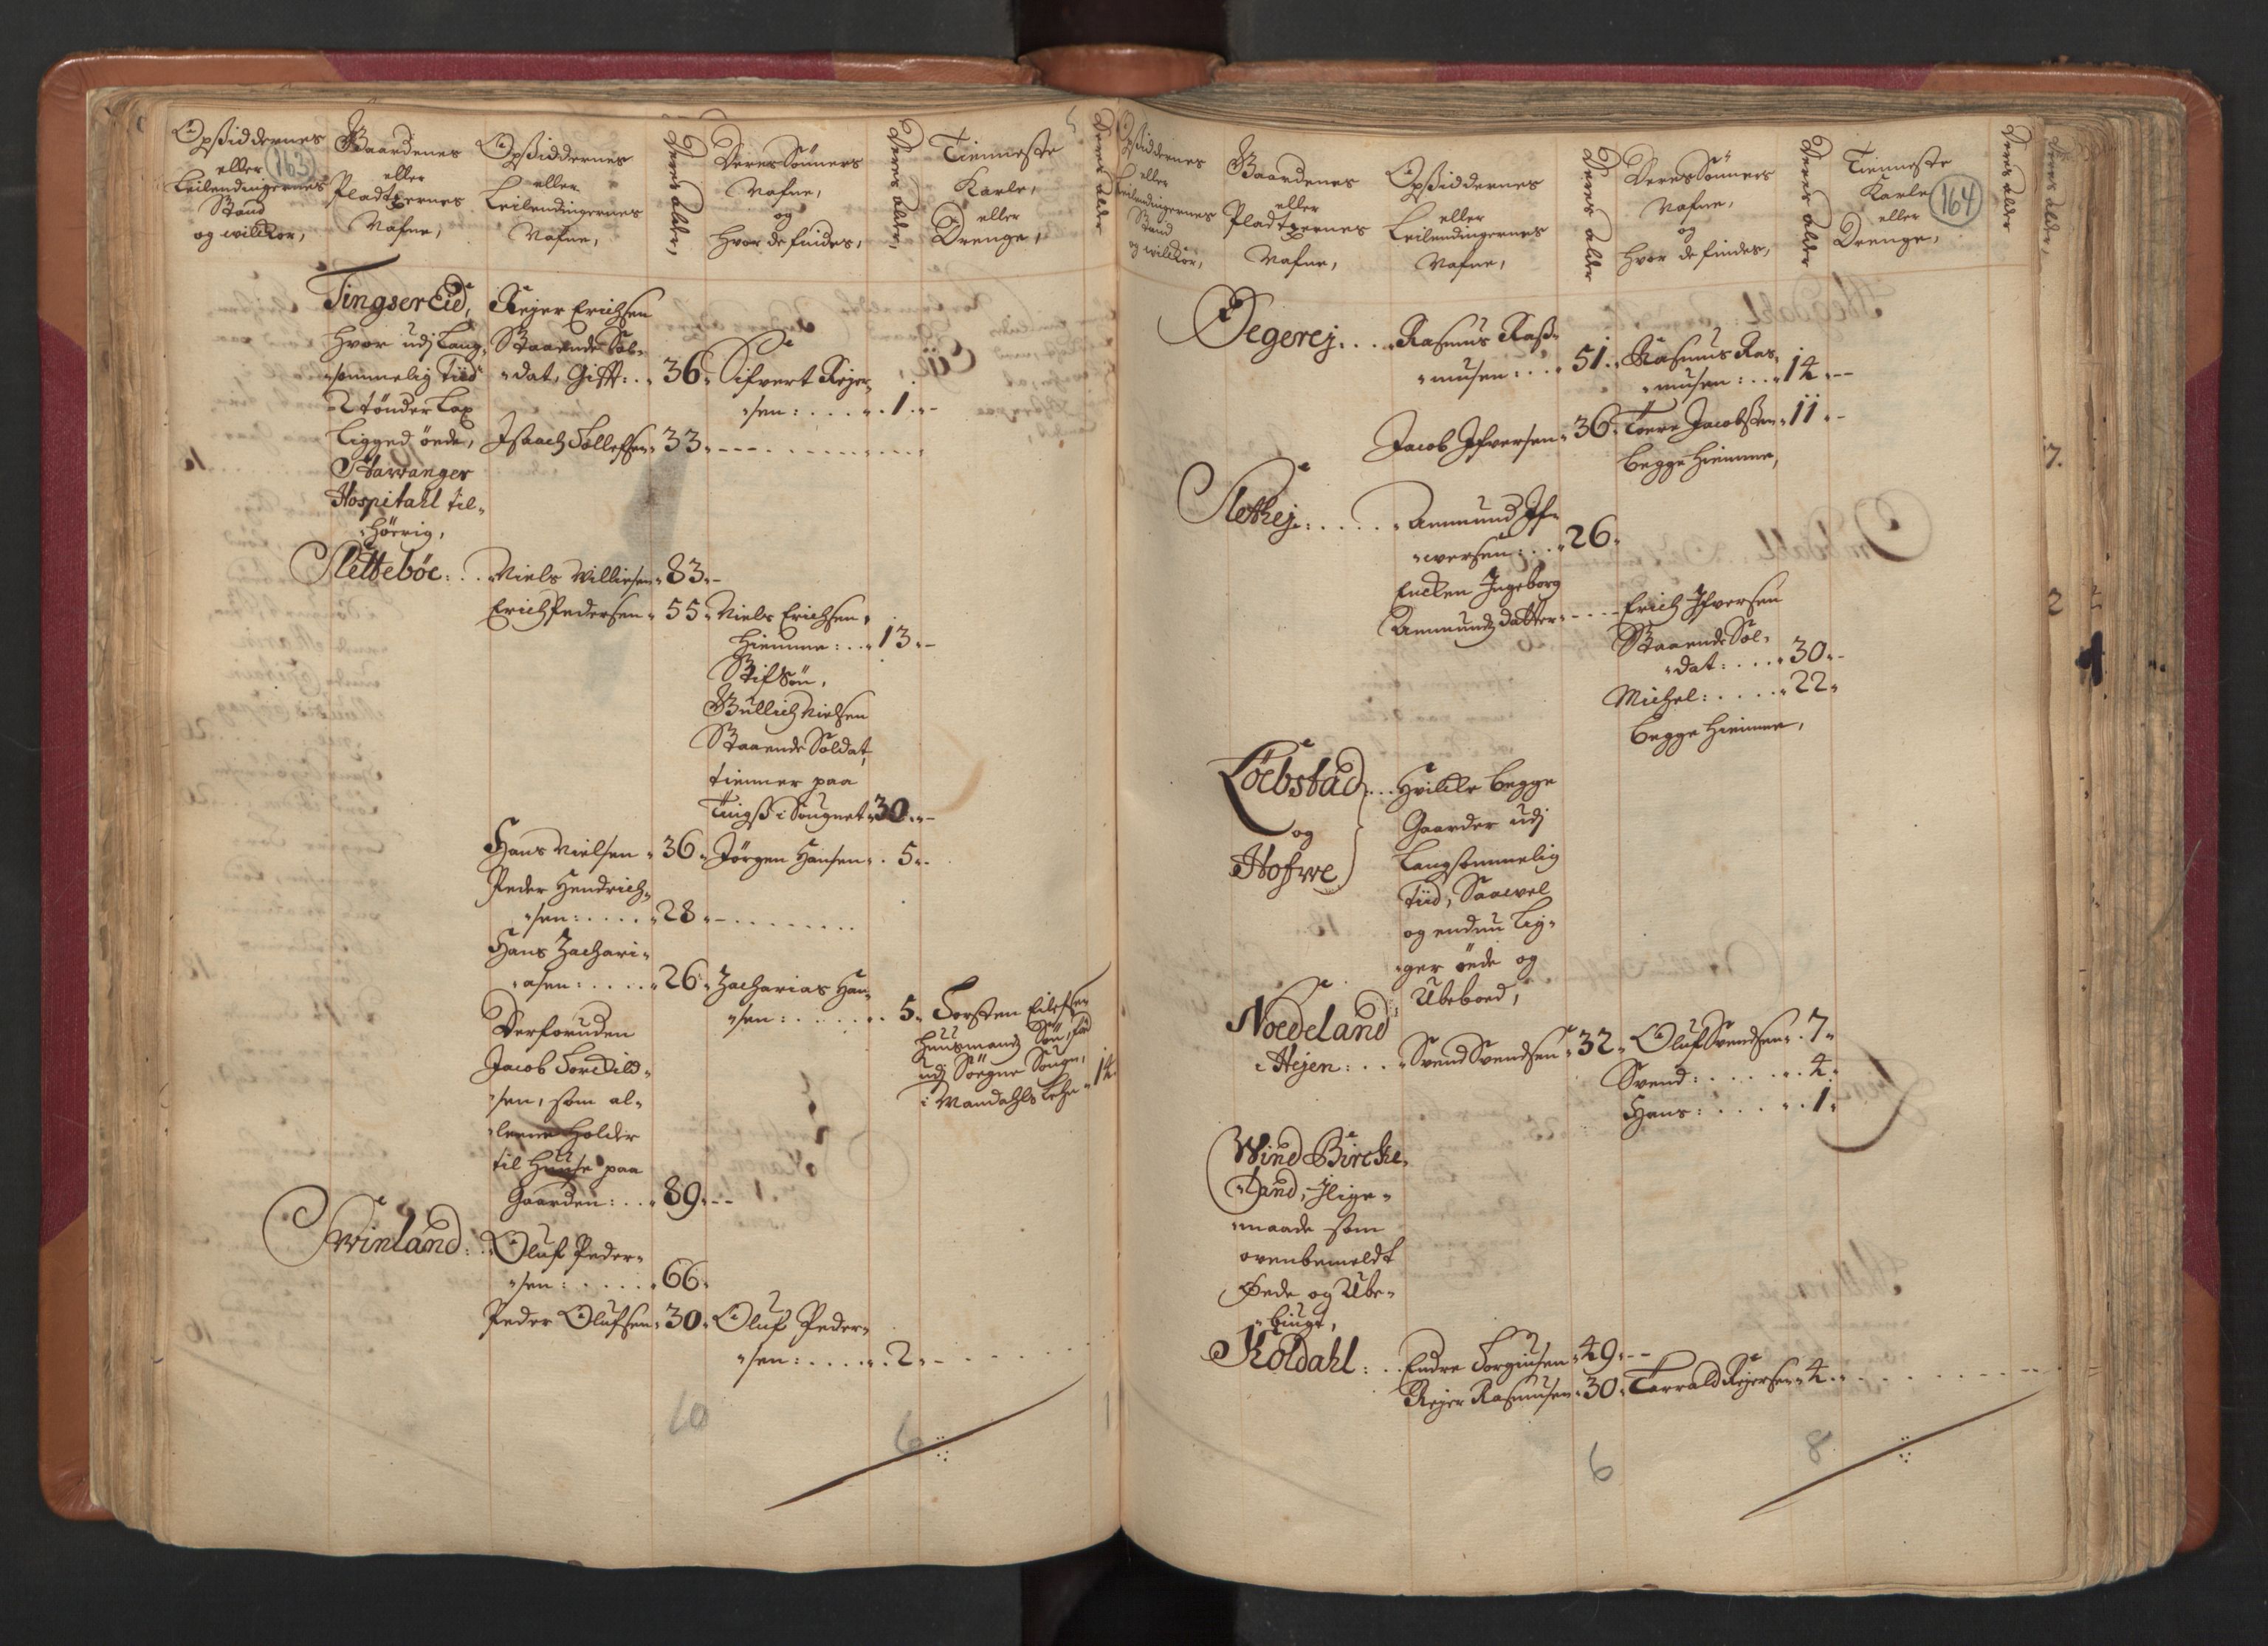 163
Opsiddernes
eller
Leilendingernes
Stand
og willkor,
Gaardenes
eller
Pladtzernes
Nafne,
Opsiddernes
eller
Leilendingernes
Nafne,
Deres alder,
Deres Sönners
Nafne,
og
hvor de findes,
Deres alder,
Tienneste
Karle,
eller
Drenge,
Deres alder
Tingsereid,
hvor udj lang-
sommelig Tiid
2 tönder lax
ligged öede,
Stawanger
Hospitahl til-
hörrig,
Rejer Erichsen
Staaende Sol-
dat, Gifft: . . 36.
Sifvert Rejer-
sen: . . . . 1.
Isaach Tollefsen. 33.
Sletteböe: . . Niels Willumsen. 83.
Erich Pedersen. 55. Niels Erichsen,
hiemme: . . 13.
Stifsön,
Gullich Nielsen
Staaende Soldat,
tienner paa
Tingss i Sougnet. 30.
Hans Nielsen. 36. Jörgen Hansen. 5.
Peder Hendrich-
sen: . . . . 28.
Hans Zachari-
asen: . . . . 26. Zacharias Han-
sen: . . . . . 5.
Torsten Eilefsen
huusmands Sön, föd
udj Söegne Sougn,
i Mandahls Lehn. 14.
Derforuden
Jacob Toreild-
sen, som al-
leene holder
til huuse paa
Gaarden: . . 89.
Swinland: . Oluf Peder-
sen: . . . . . 66.
Peder Olufsen. 30. Oluf Peder-
sen: . . . . . 2.
10 6 1
164
Opsiddernes
eller
Leilendingernes
Stand
og willkor,
Gaardenes
eller
Pladtzernes
Nafne,
Opsiddernes
eller
Leilendingernes
Nafne,
Deres alder
Deres Sönners
Nafne,
og
hvor de findes,
Deres alder
Tienneste
Karle
eller
Drenge,
Deres alder
Deres alder,
Egerej. . . . Rasmus Rass-
musen: . . . 51. Rasmus Ras-
musen: . . . 14.
Jacob Ifversen. 36. Toere Jacobssen. 11.
begge hiemme,
Slethej: . . . . Ammund If-
wersen: . . . 26.
Encken Ingeborg
Ammunds datter. Erich Ifversen
Staaende Sol-
dat: . . . . 30.
Michel: . . . . 22.
begge hiemme,
Löebstad
og
Hofwe
. . . hvilke begge
Gaarder udj
langsommelig
Tiid, Saavel
og endnu lig-
ger öede og
Ubeboed,
Noedeland
Hejen: . . Svend Svendsen. 32. Oluf Svendsen. 7.
Svend: . . . . . 4.
Hans: . . . . . 1.
Wind Bircke-
land, Ilige-
maade som
ovenbemeldt
Öede og Ube-
biugt,
Koldahl: . . Endre Torgiusen. 49.
Rejer Rasmusen. 30. Tarrald Rejersen. 4.
6 8
7.
2